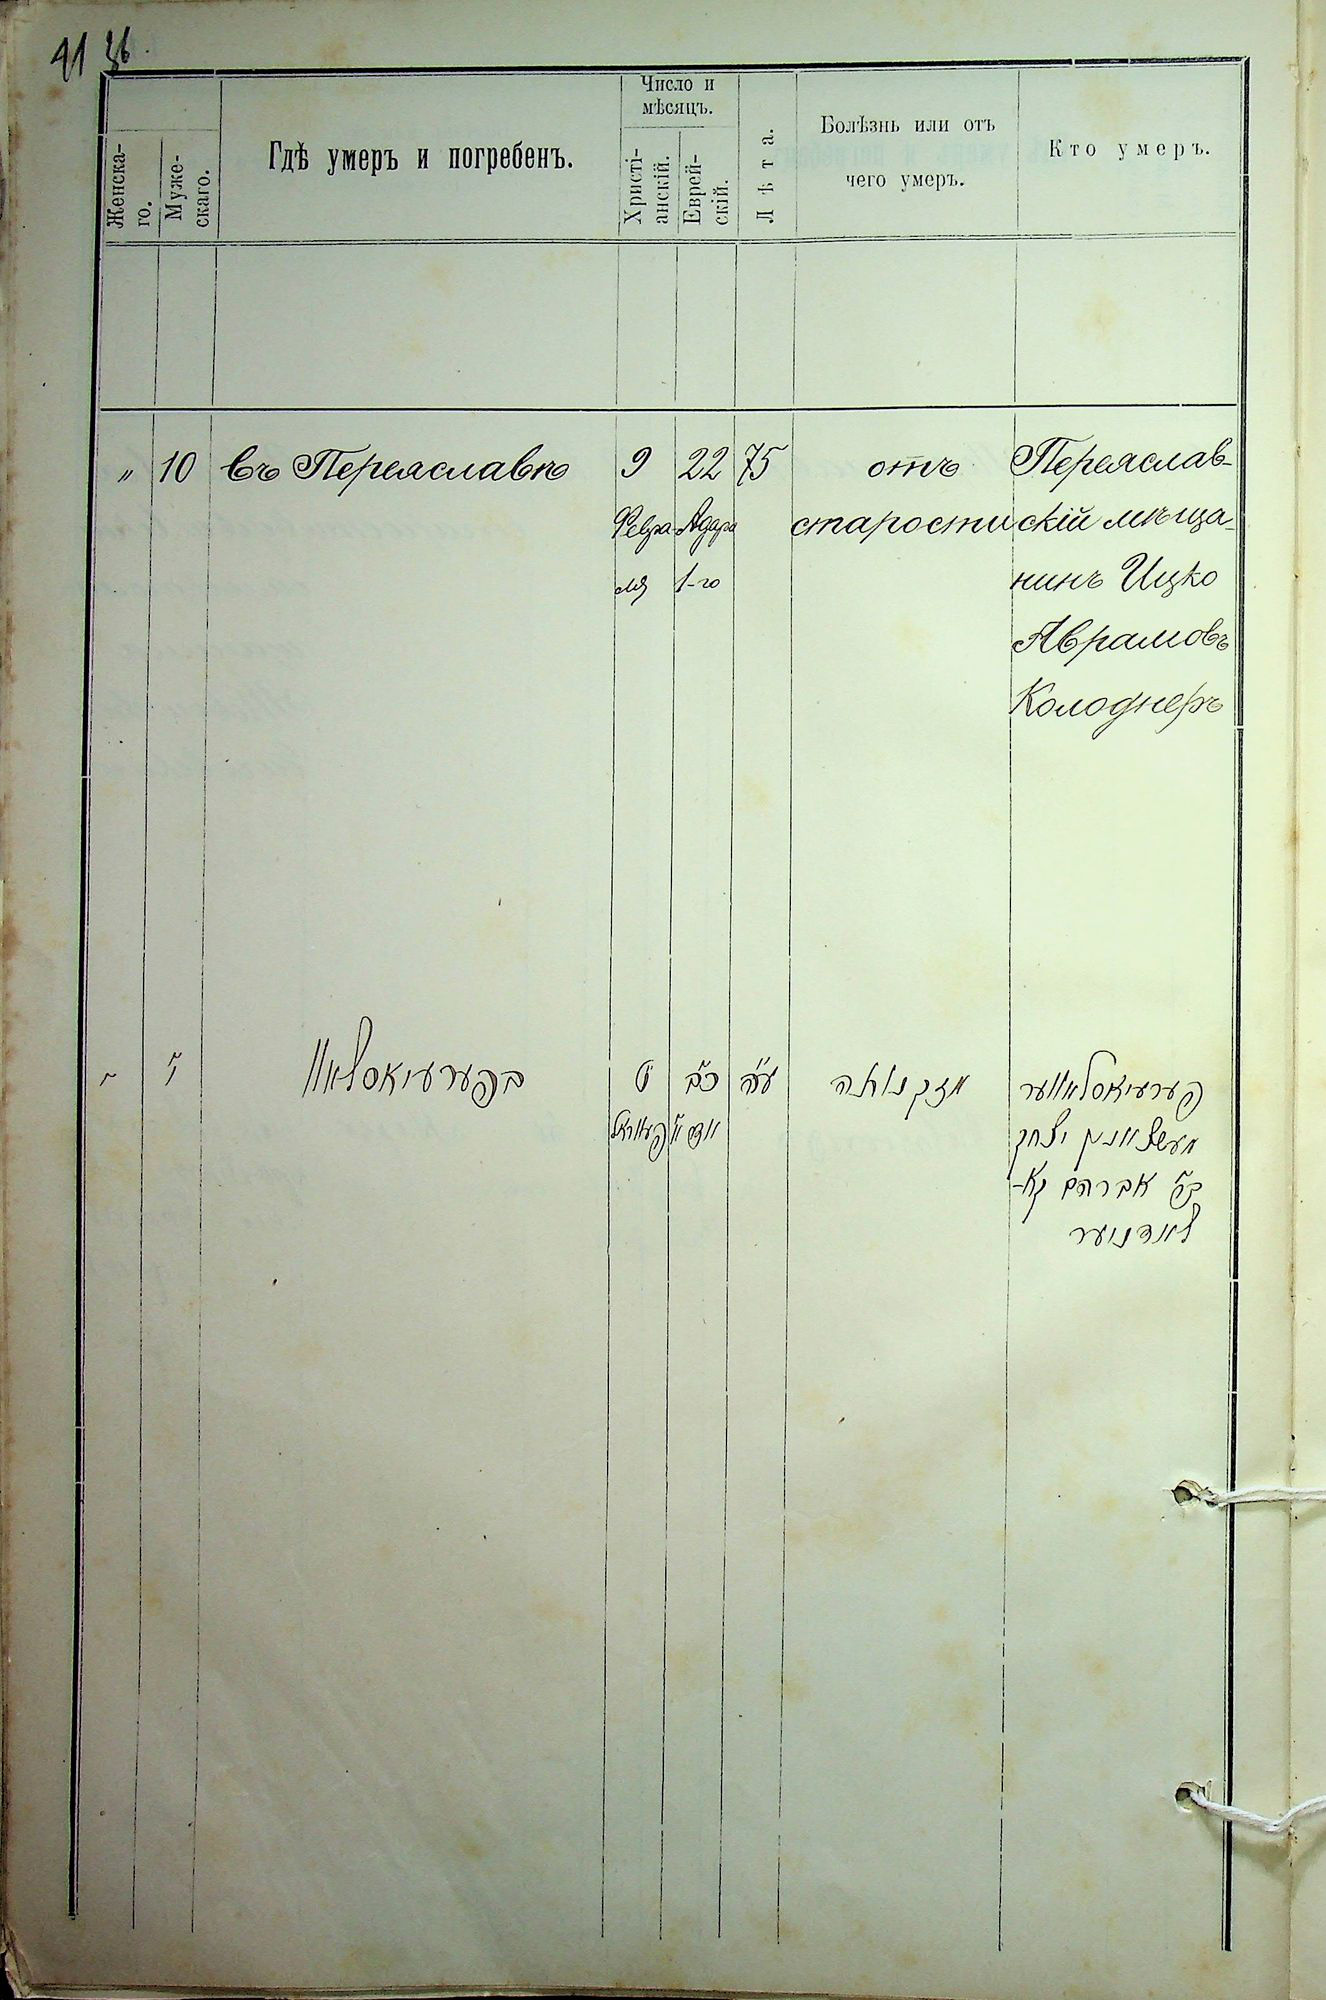 41
Женска-
го.
Муже-
скаго.
Гдѣ умеръ и погребенъ.
Число и
мѣсяцъ.
Христі-
анскій.
Еврей-
скій.
Лѣта.
Болѣзнь или отъ
чего умеръ.
Кто умеръ.
"
10
въ Переяславѣ
9
Февра-
ля
22
Адара
1-го
75
отъ
старости
Переяслав-
скій мѣща-
нинъ Ицко
Аврамовъ
Колоднеръ
"
י"
בפערעיאסלאוו
ט
פעווראל
כ"ב
ע"ה
מזקנותה
פערעיאסלאווער
מעשצאנין יצחק
ב"ר אברהם קא-
לאדנער